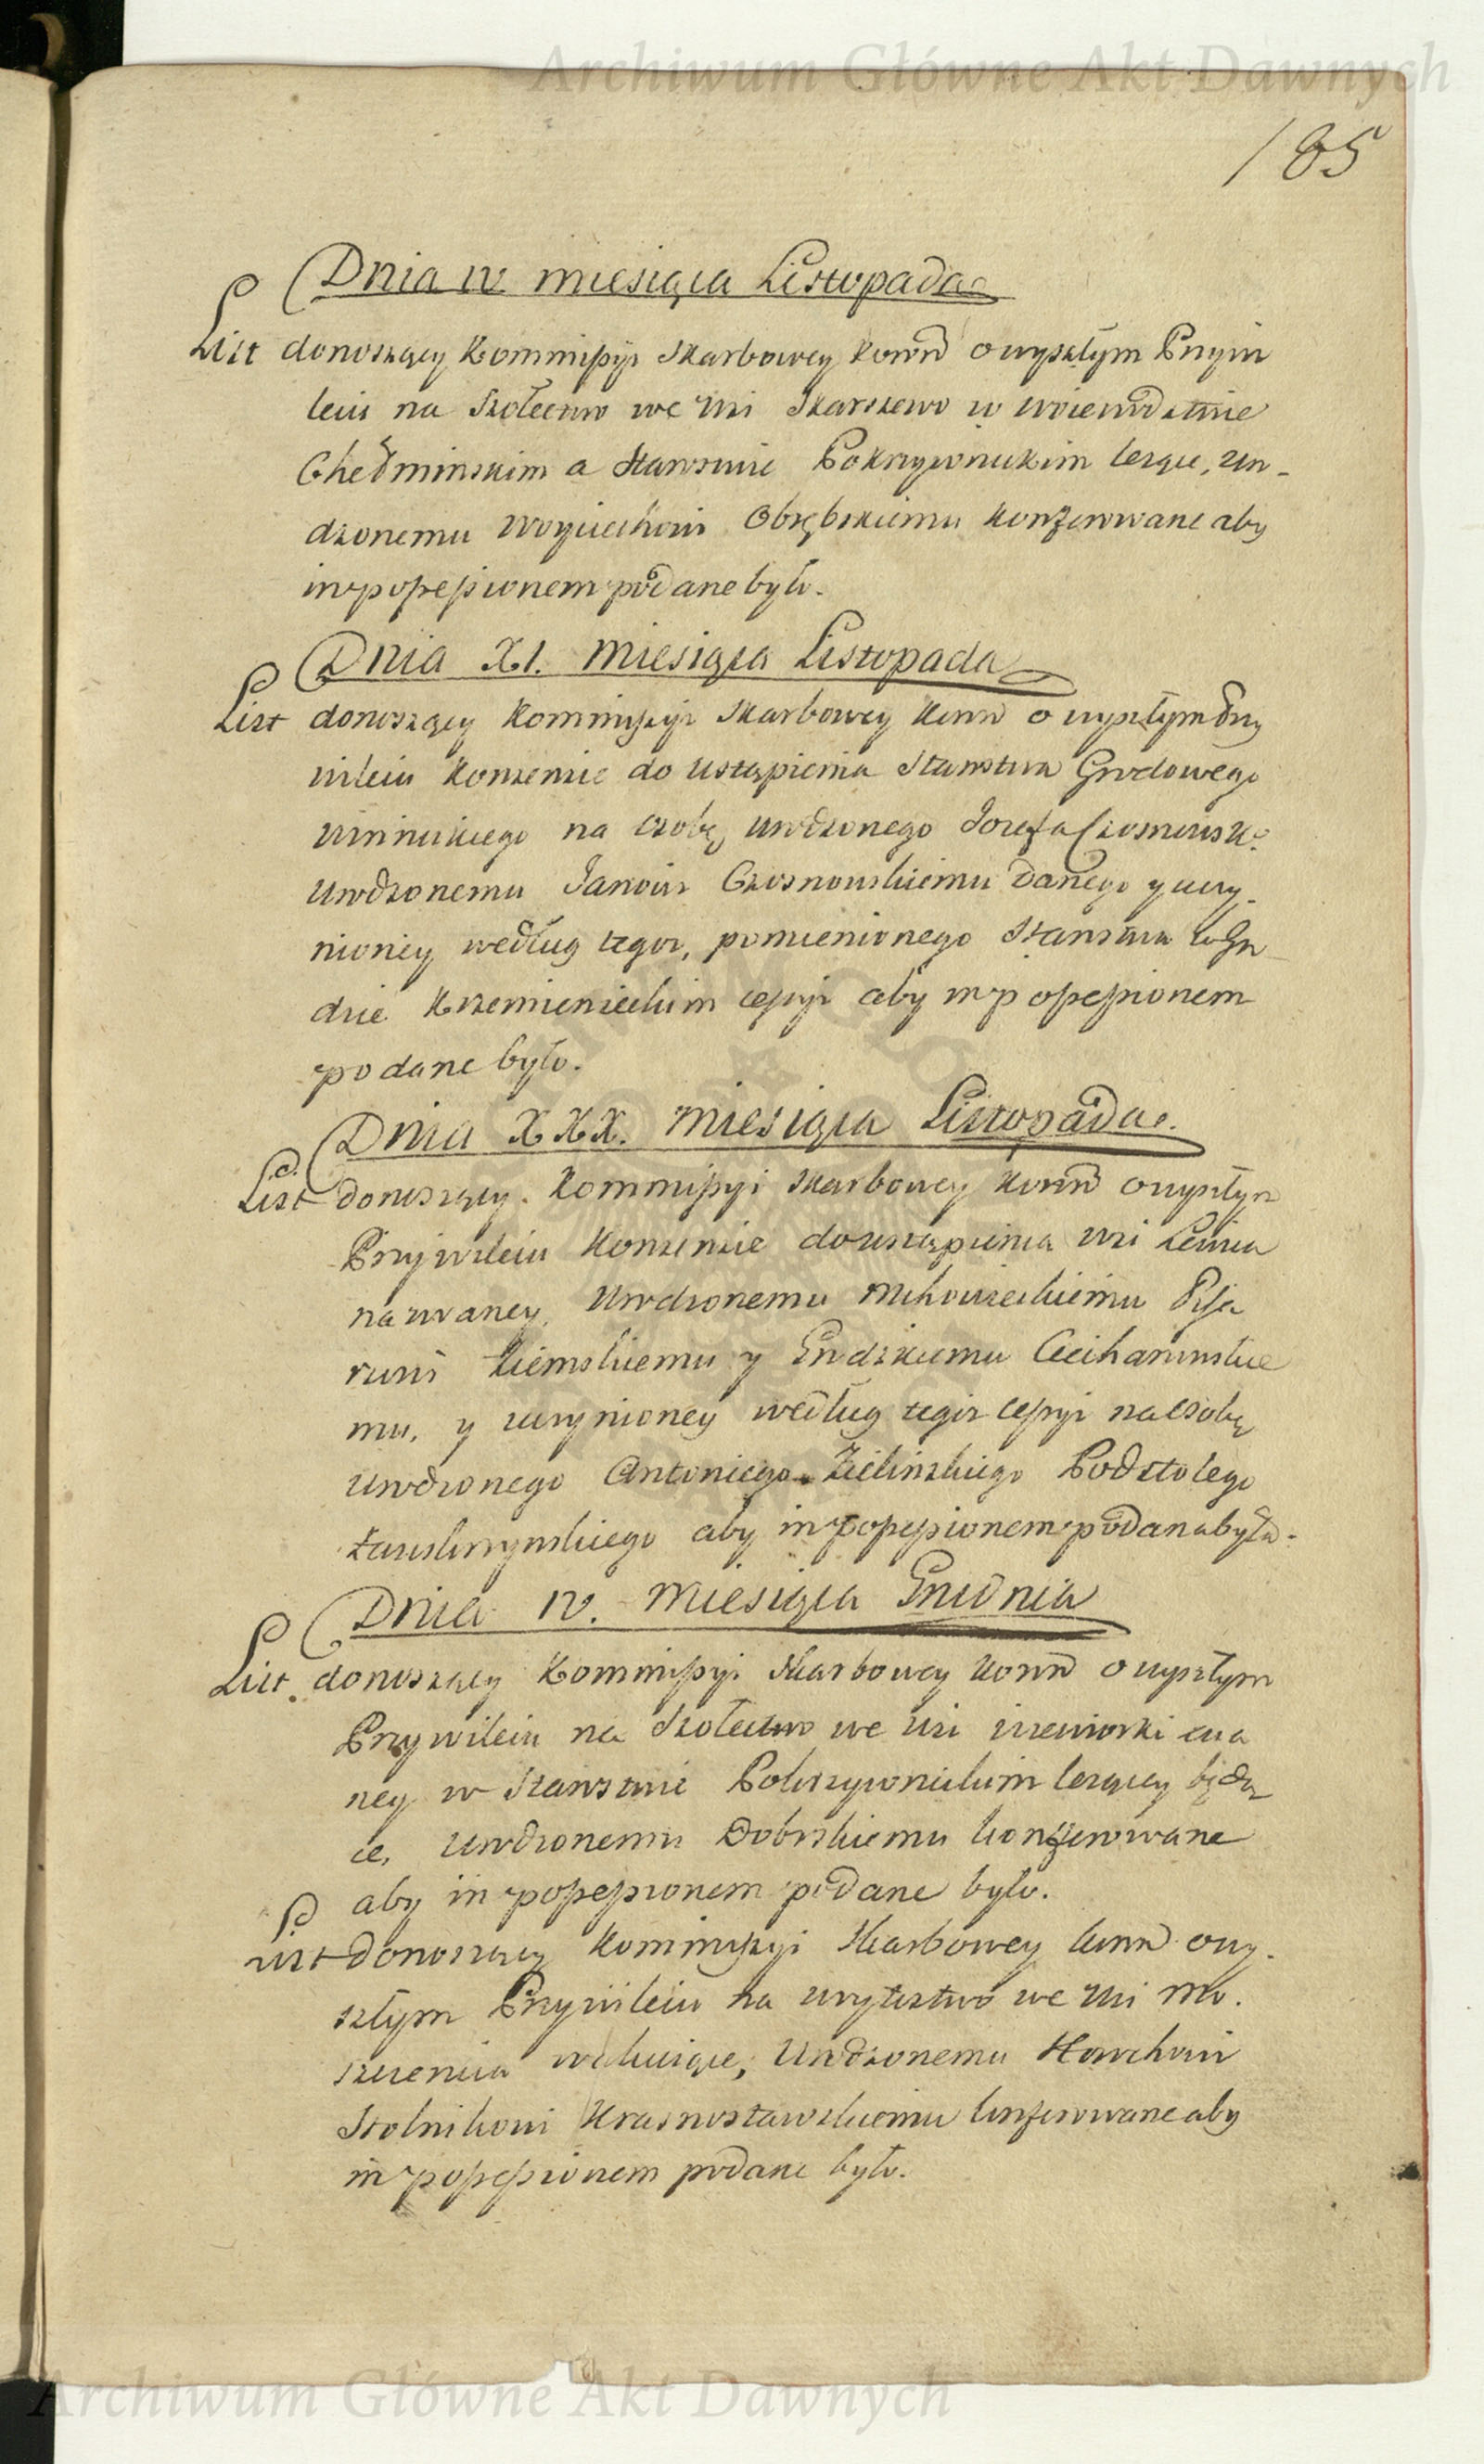 Archiwum Główne Akt Dawnych
185
Dnia IV miesiąca Listopada
List donoszący Kommissyi Skarbowey Koronn o wyszłym Przywi
leiu na Szołectwo we Wsi Skarszewo w Woiewodztwie
Chełminskim a Starostwie Pokrzywnickim leżące, Uro-
dzonemu Woyciechowi Obrębskiemu konferowane aby
in possessionem podane było.
Dnia XI. Miesiąca Listopada
List donoszący Kommissyi Skarbowey Koronn o wyszłym Przy
wileiu Konsensie do ustąpienia Starostwa Grodowego
Winnickiego na osobę Urodzonego Jozefa Czosnowskº
Urodzonemu Janowi Czosnowskiemu danego y uczy-
nioney według tegoż, pomienionego Starostwa w Gro
dzie Krzemienieckim cessyi aby in possessionem
podane było.
Dnia XXX. Miesiąca Listopada.
List donoszący Kommissyi Skarbowey Koronn o wyszłym
Przywileiu Konsensie do ustąpienia wsi
nazwaney, Urodzonemu Pisa
rzowi Ziemskiemu y Grodzkiemu Ciechanowskie
mu, y uczynioney według tegoż cessyi na osobę
Urodzonego Antoniego Zielinskiego Podstolego
Zawskrzynskiego aby in possessionem podana była.
Dnia IV. Miesiąca Grudnia
List donoszący Kommissyi Skarbowey Koronn o wyszłym
Przywileiu na Szołectwo we Wsi zwa
ney w Starostwie Pokrzywnickim leżącey będą
ce, Urodzonemu Dobrskiemu konferowane
aby in possessionem podane było.
List donoszący Kommissyi Skarbowey Koronn o wy-
szłym Przywileiu na Woytostwo we Wsi Mo-
szczenica wakuiące, Urodzonemu
Stolnikowi Krasnostawskiemu konferowane aby
in possessionem podane było.
Archiwum Główne Akt Dawnych